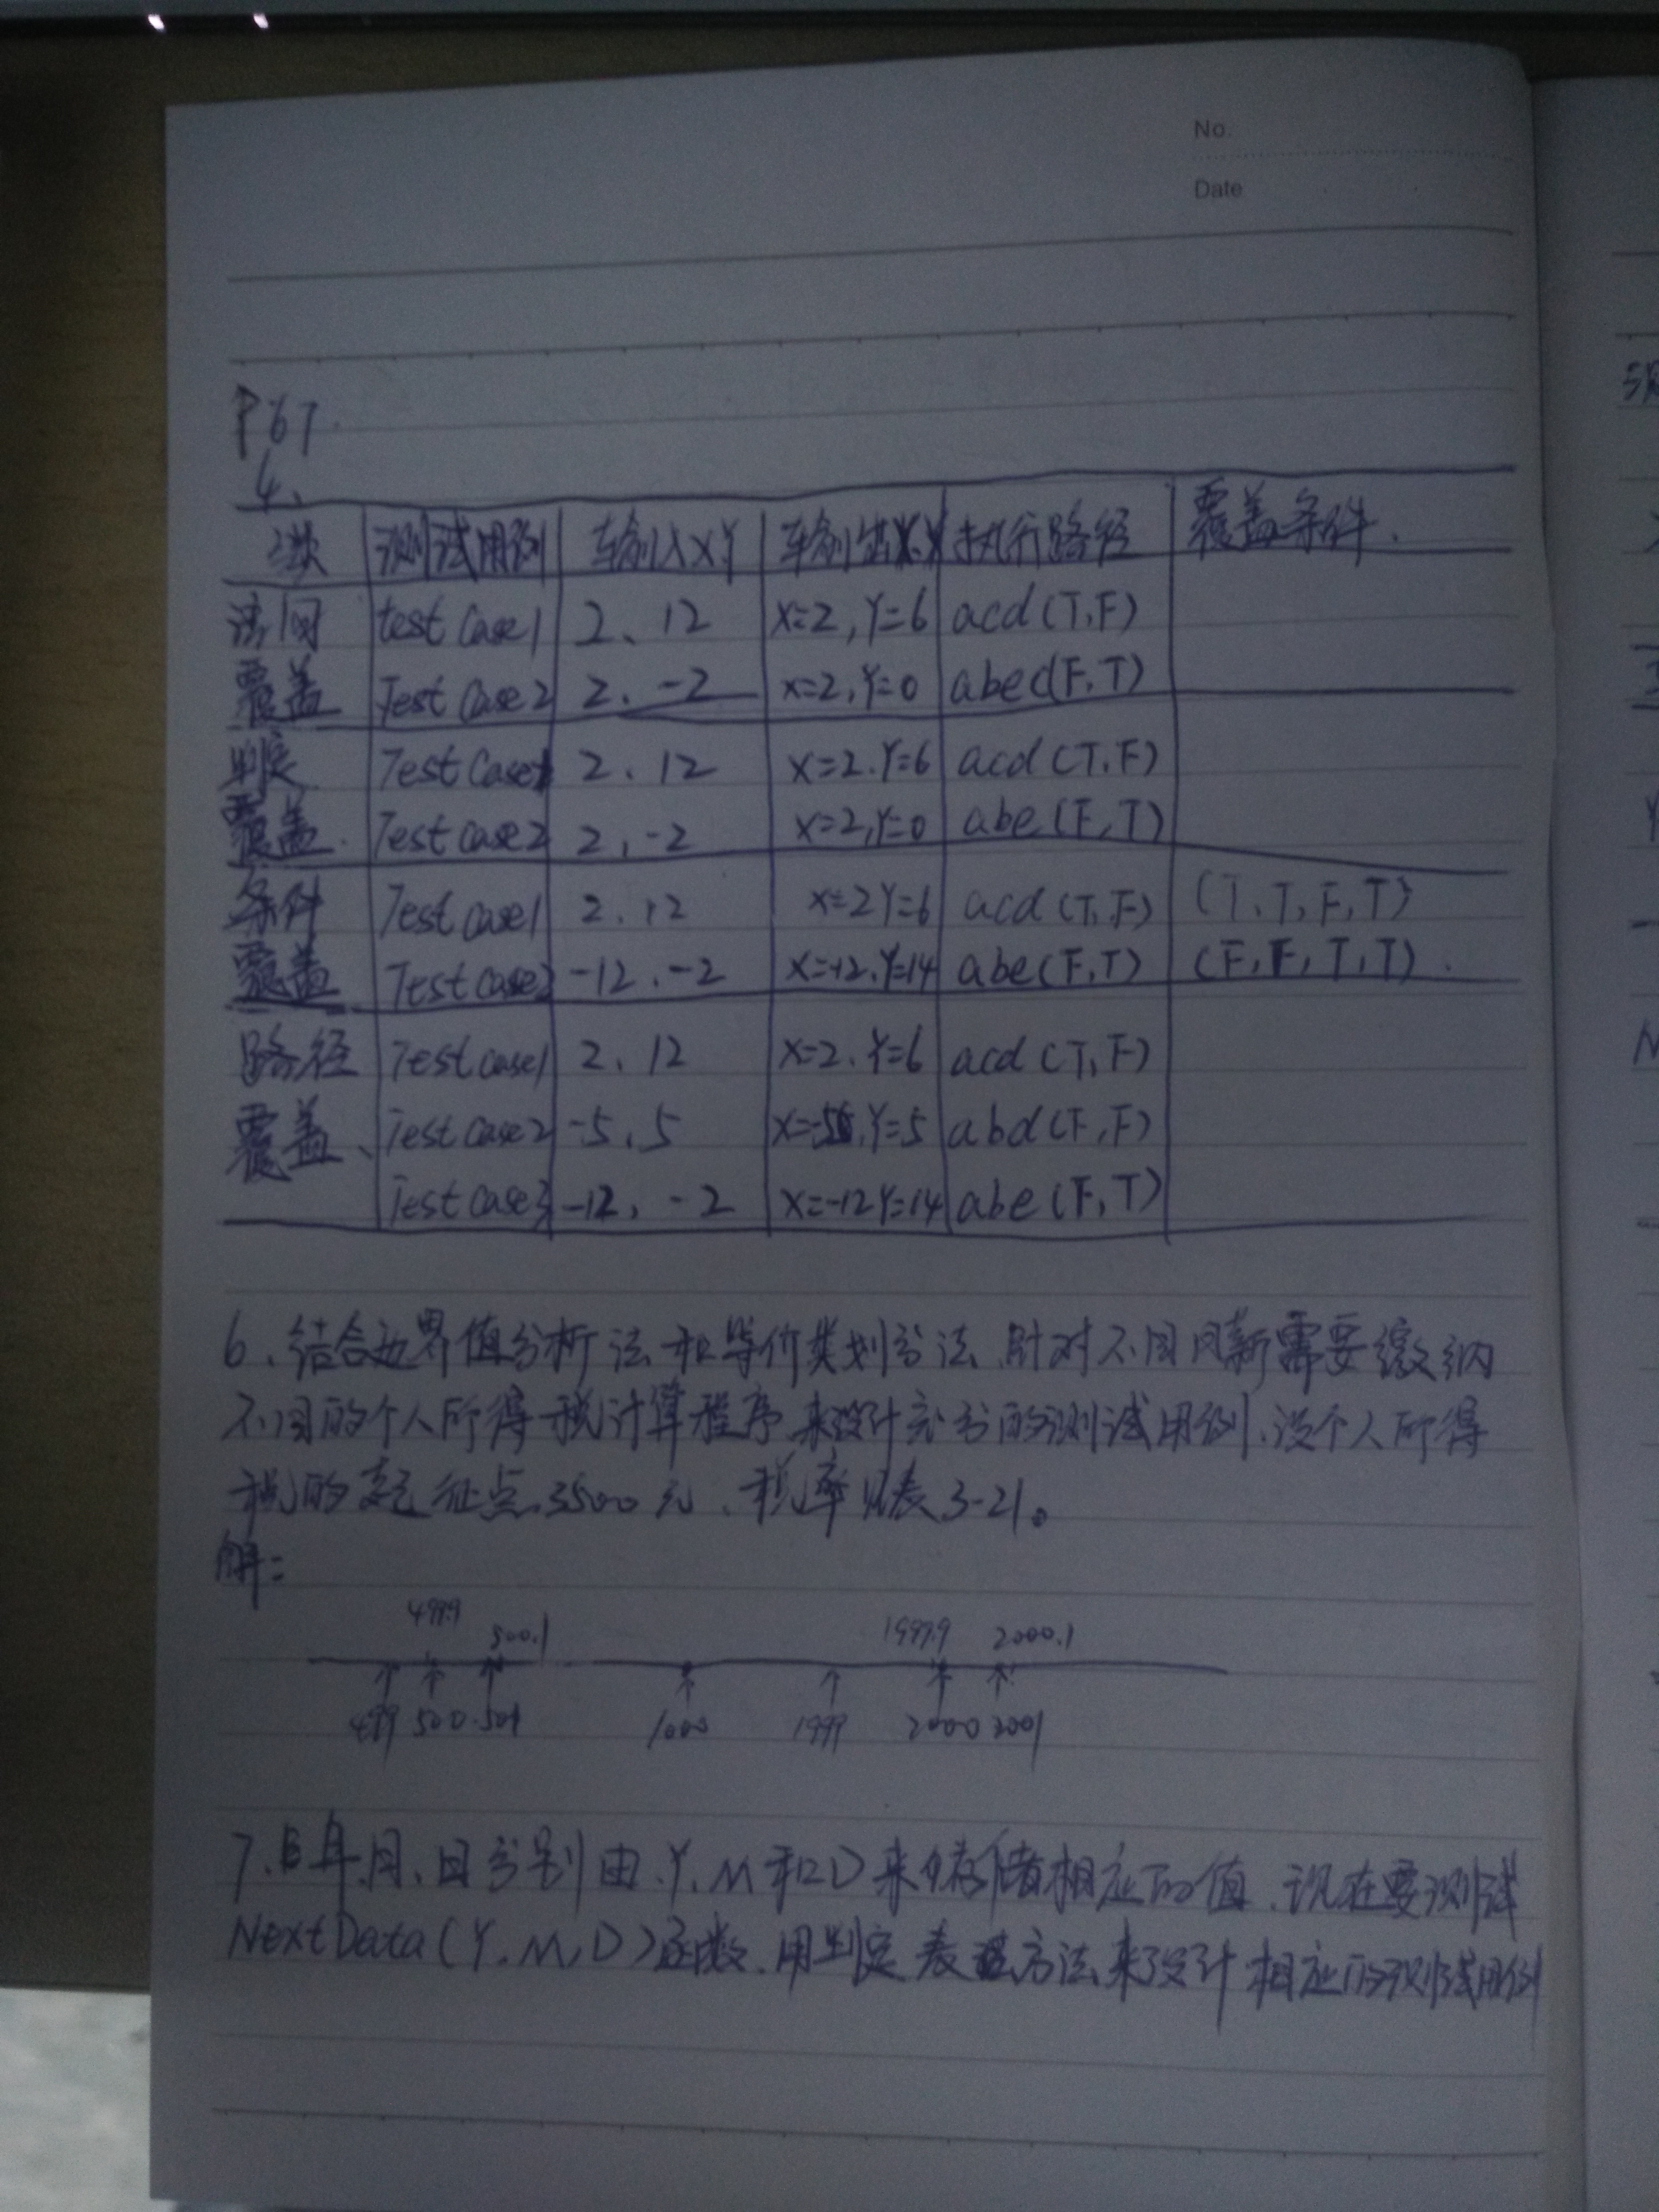 No.
Date
P67.
4、
测试用例 输入X Y 输出X.Y 执行路径 覆盖条件.
语句 test case1 2、12 X=2,Y=6 acd(T,F)
覆盖 Test case2 2、-2 X=2,Y=0 abe(F,T)
判定 Test case1 2、12 X=2.Y=6 acd(T,F)
覆盖. Test case2 2,-2 X=2,Y=0 abe(F,T)
条件 Test case1 2.12 X=2Y=6 acd(T,F) (T,T,F,T)
覆盖 Test case2 -12、-2 X=-12.Y=14 abe(F,T) (F,F,T,T).
路径 Test case1 2、12 X=2.Y=6 acd(T,F)
覆盖、 Test case2 -5、5 Y=5 abd(F,F)
Test case3 -12,-2 X=-12Y=14 abe(F,T)
6、结合边界值分析法和等价类划分法,针对不同月薪需要缴纳
不同的个人所得税计算程序来设计完书的测试用例.设个人所得
税的起征点3500元、税率见表3-21。
解:
499.9 500.1 1999.9 2000.1
499 500 501 1000 1999 2000 2001
7、年.月、日分别由.Y.M和D来存储相应的值.现在要测试
NextData(Y.M,D)函数.用判定表方法来设计相应的测试用例